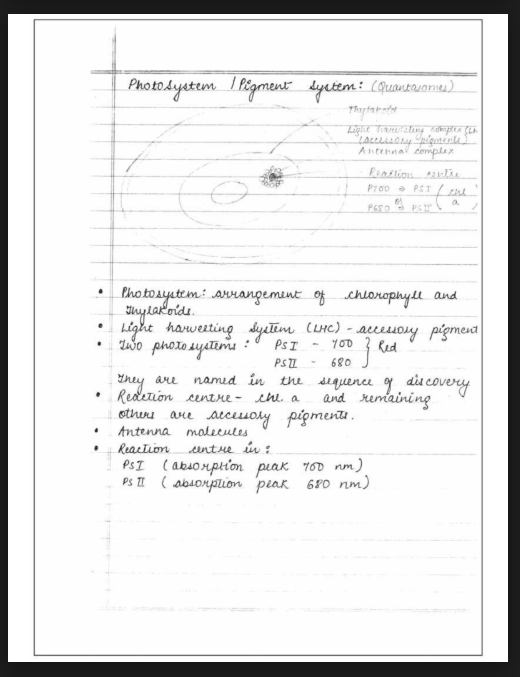 Photosystem / Pigment System: (Quantasomes)
Thylakoid
Light harvesting complex (LH
(accessory pigments)
Antenna complex
Reaction centre
P700 → PSI ( chl
or a )
P680 → PSII
• Photosystem: arrangement of chlorophyll and
thylakoids.
• Light harvesting System (LHC) - accessory pigment
• Two photosystems: PSI - 700 } Red
PSII - 680
They are named in the sequence of discovery
• Reaction centre - chl. a and remaining
others are accessory pigments.
• Antenna molecules
• Reaction centre in:
PSI (absorption peak 700 nm)
PSII (absorption peak 680 nm)